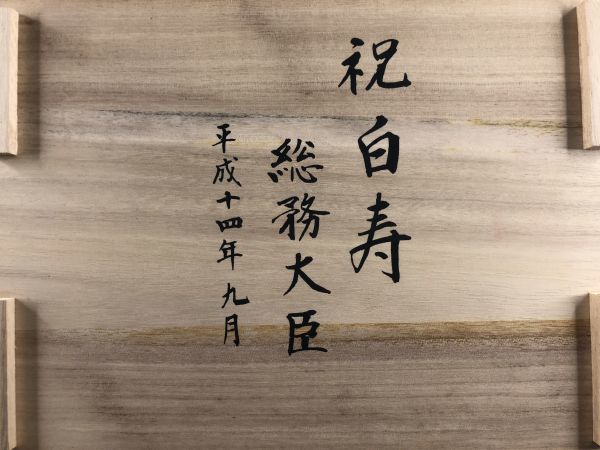 祝白寿
総務大臣
平成十四年九月